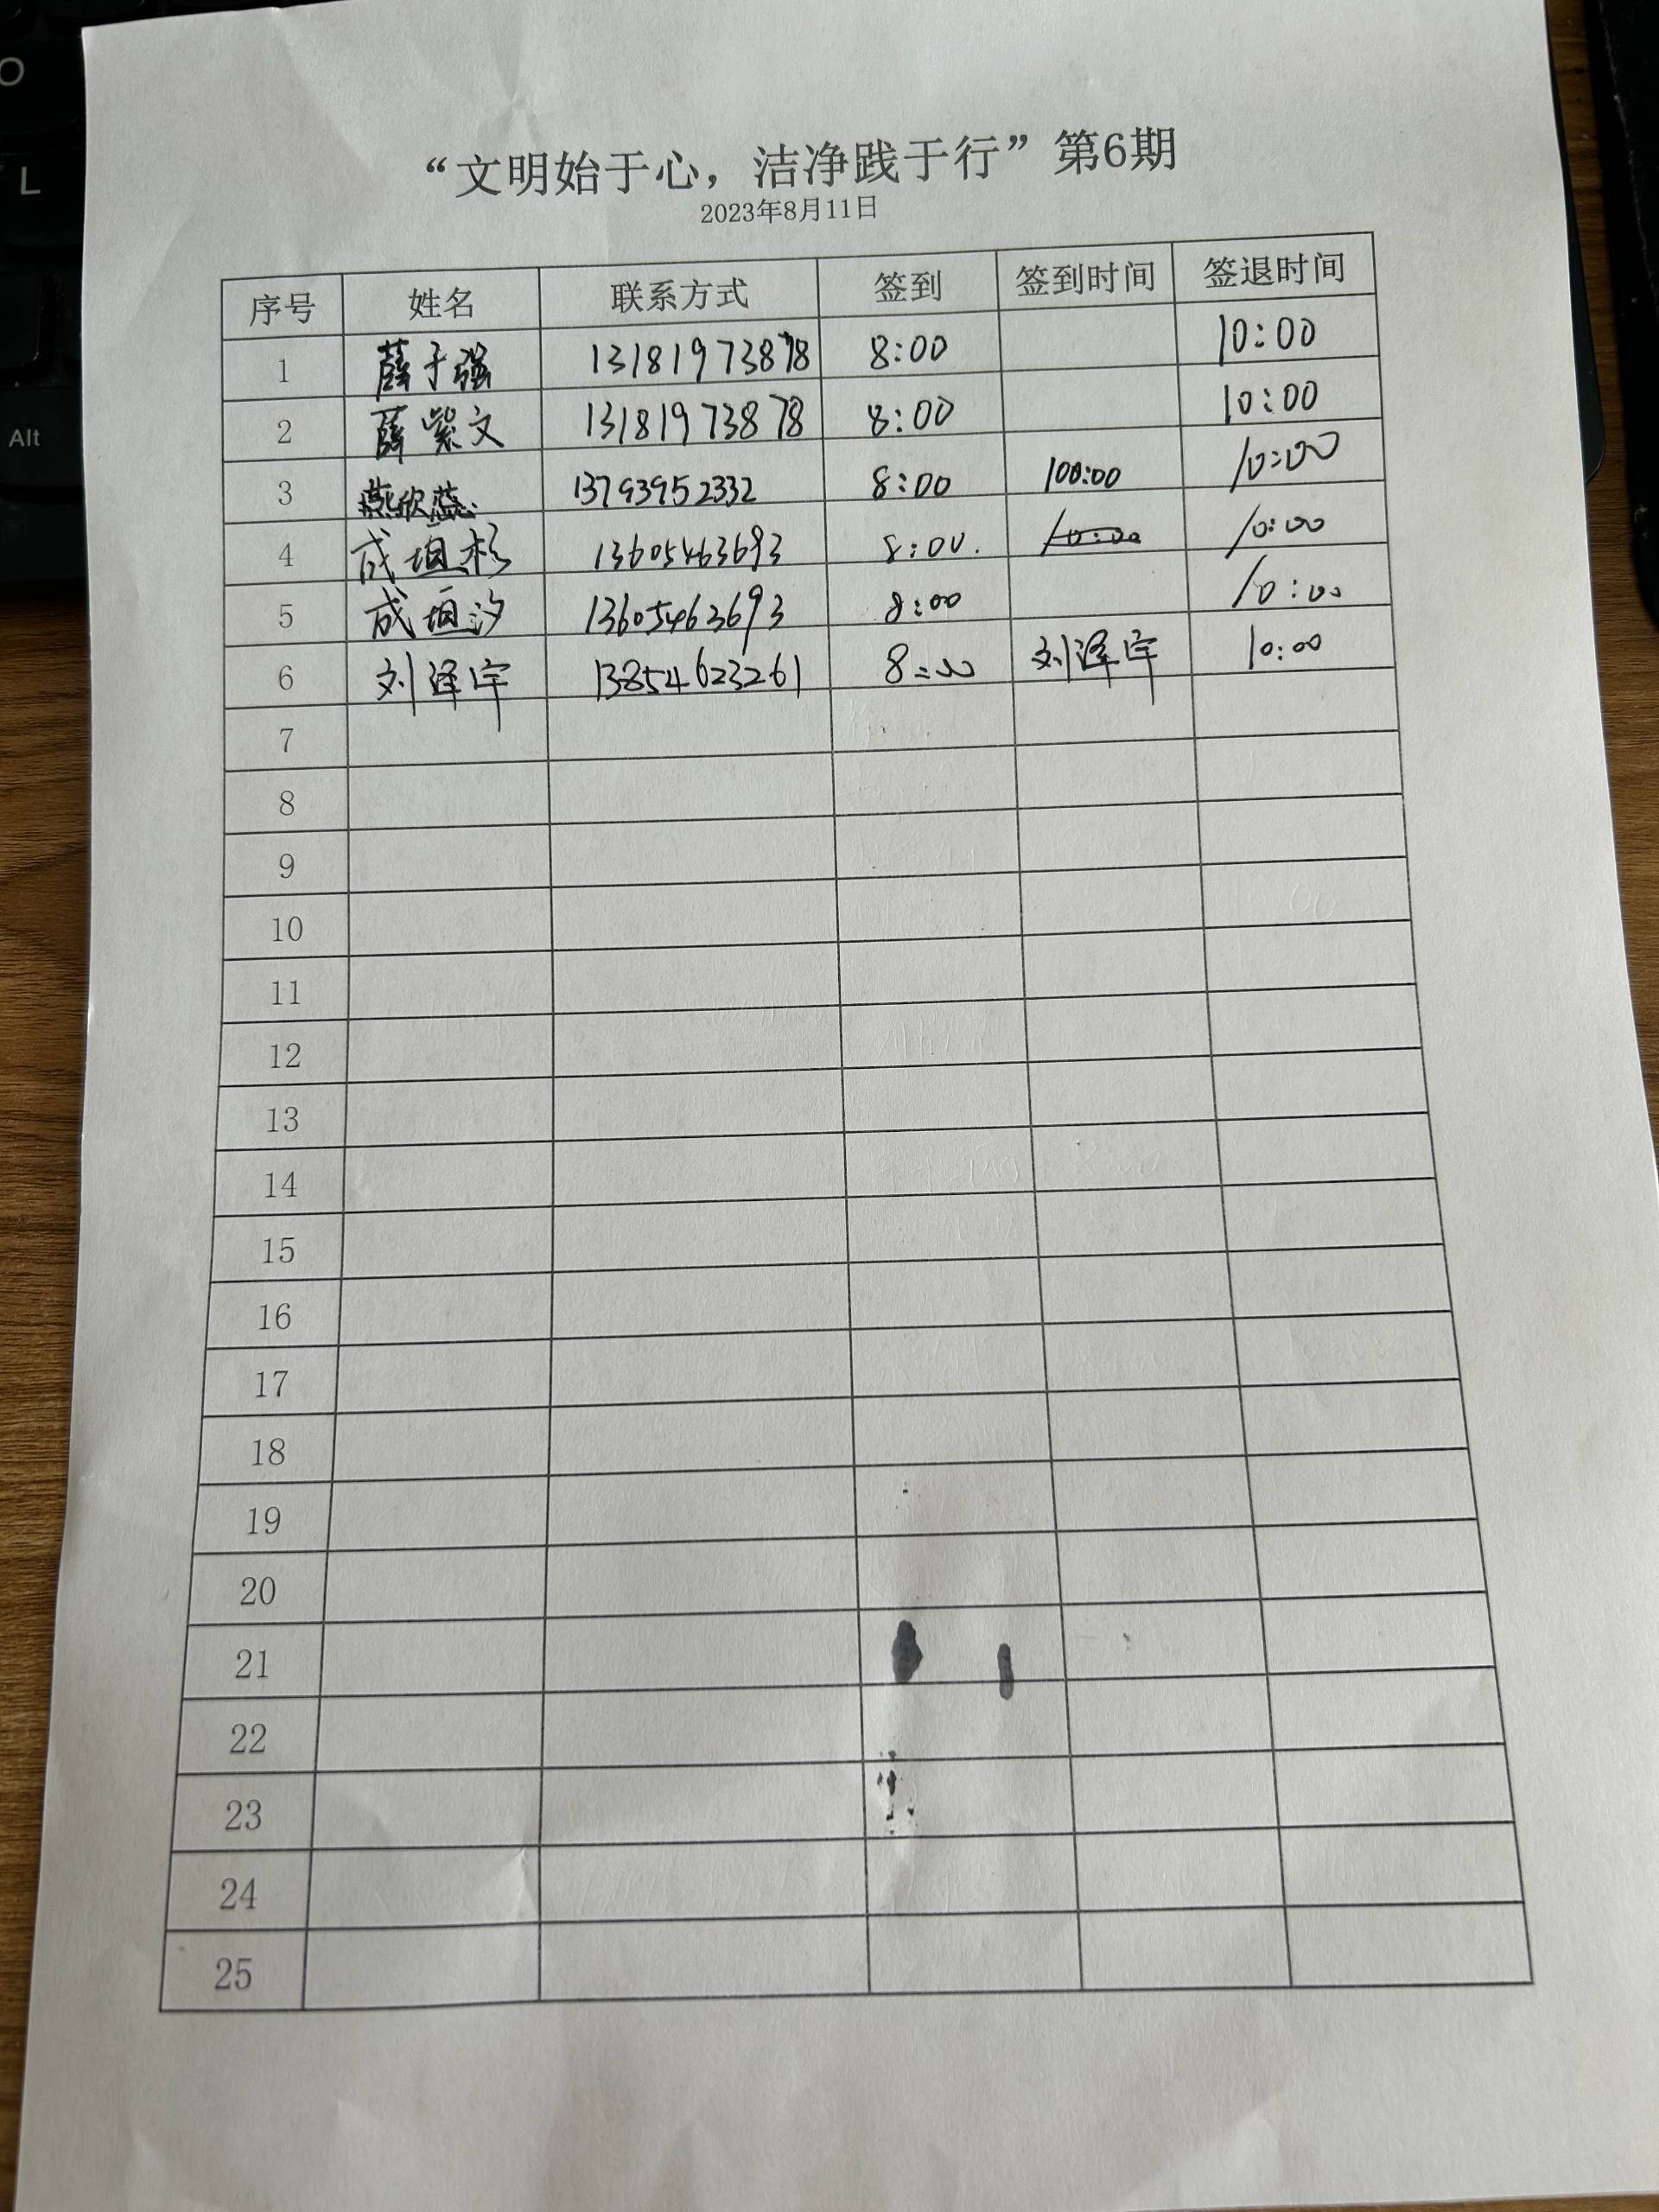 “文明始于心，洁净践于行”第6期
2023年8月11日
序号 姓名 联系方式 签到 签到时间 签退时间
1 薛子强 13181973878 8:00 10:00
2 薛紫文 13181973878 8:00 10:00
3 燕欣蕊 13793952332 8:00 100:00 10:00
4 成垣杉 13605463693 8:00. 10:00 10:00
5 成垣汐 13605463693 8:00 10:00
6 刘泽宇 13854623261 8:00 刘泽宇 10:00
7
8
9
10
11
12
13
14
15
16
17
18
19
20
21
22
23
24
25
O
L
Alt